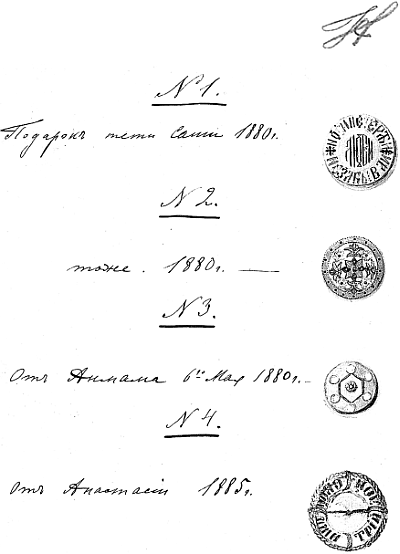 № 1.
Подарокъ тети Саши 1880г.
№ 2.
тоже. 1880г. —
№ 3.
Отъ Анмама 6го Мая 1880г.
№ 4.
Отъ Анастасіи 1885г.